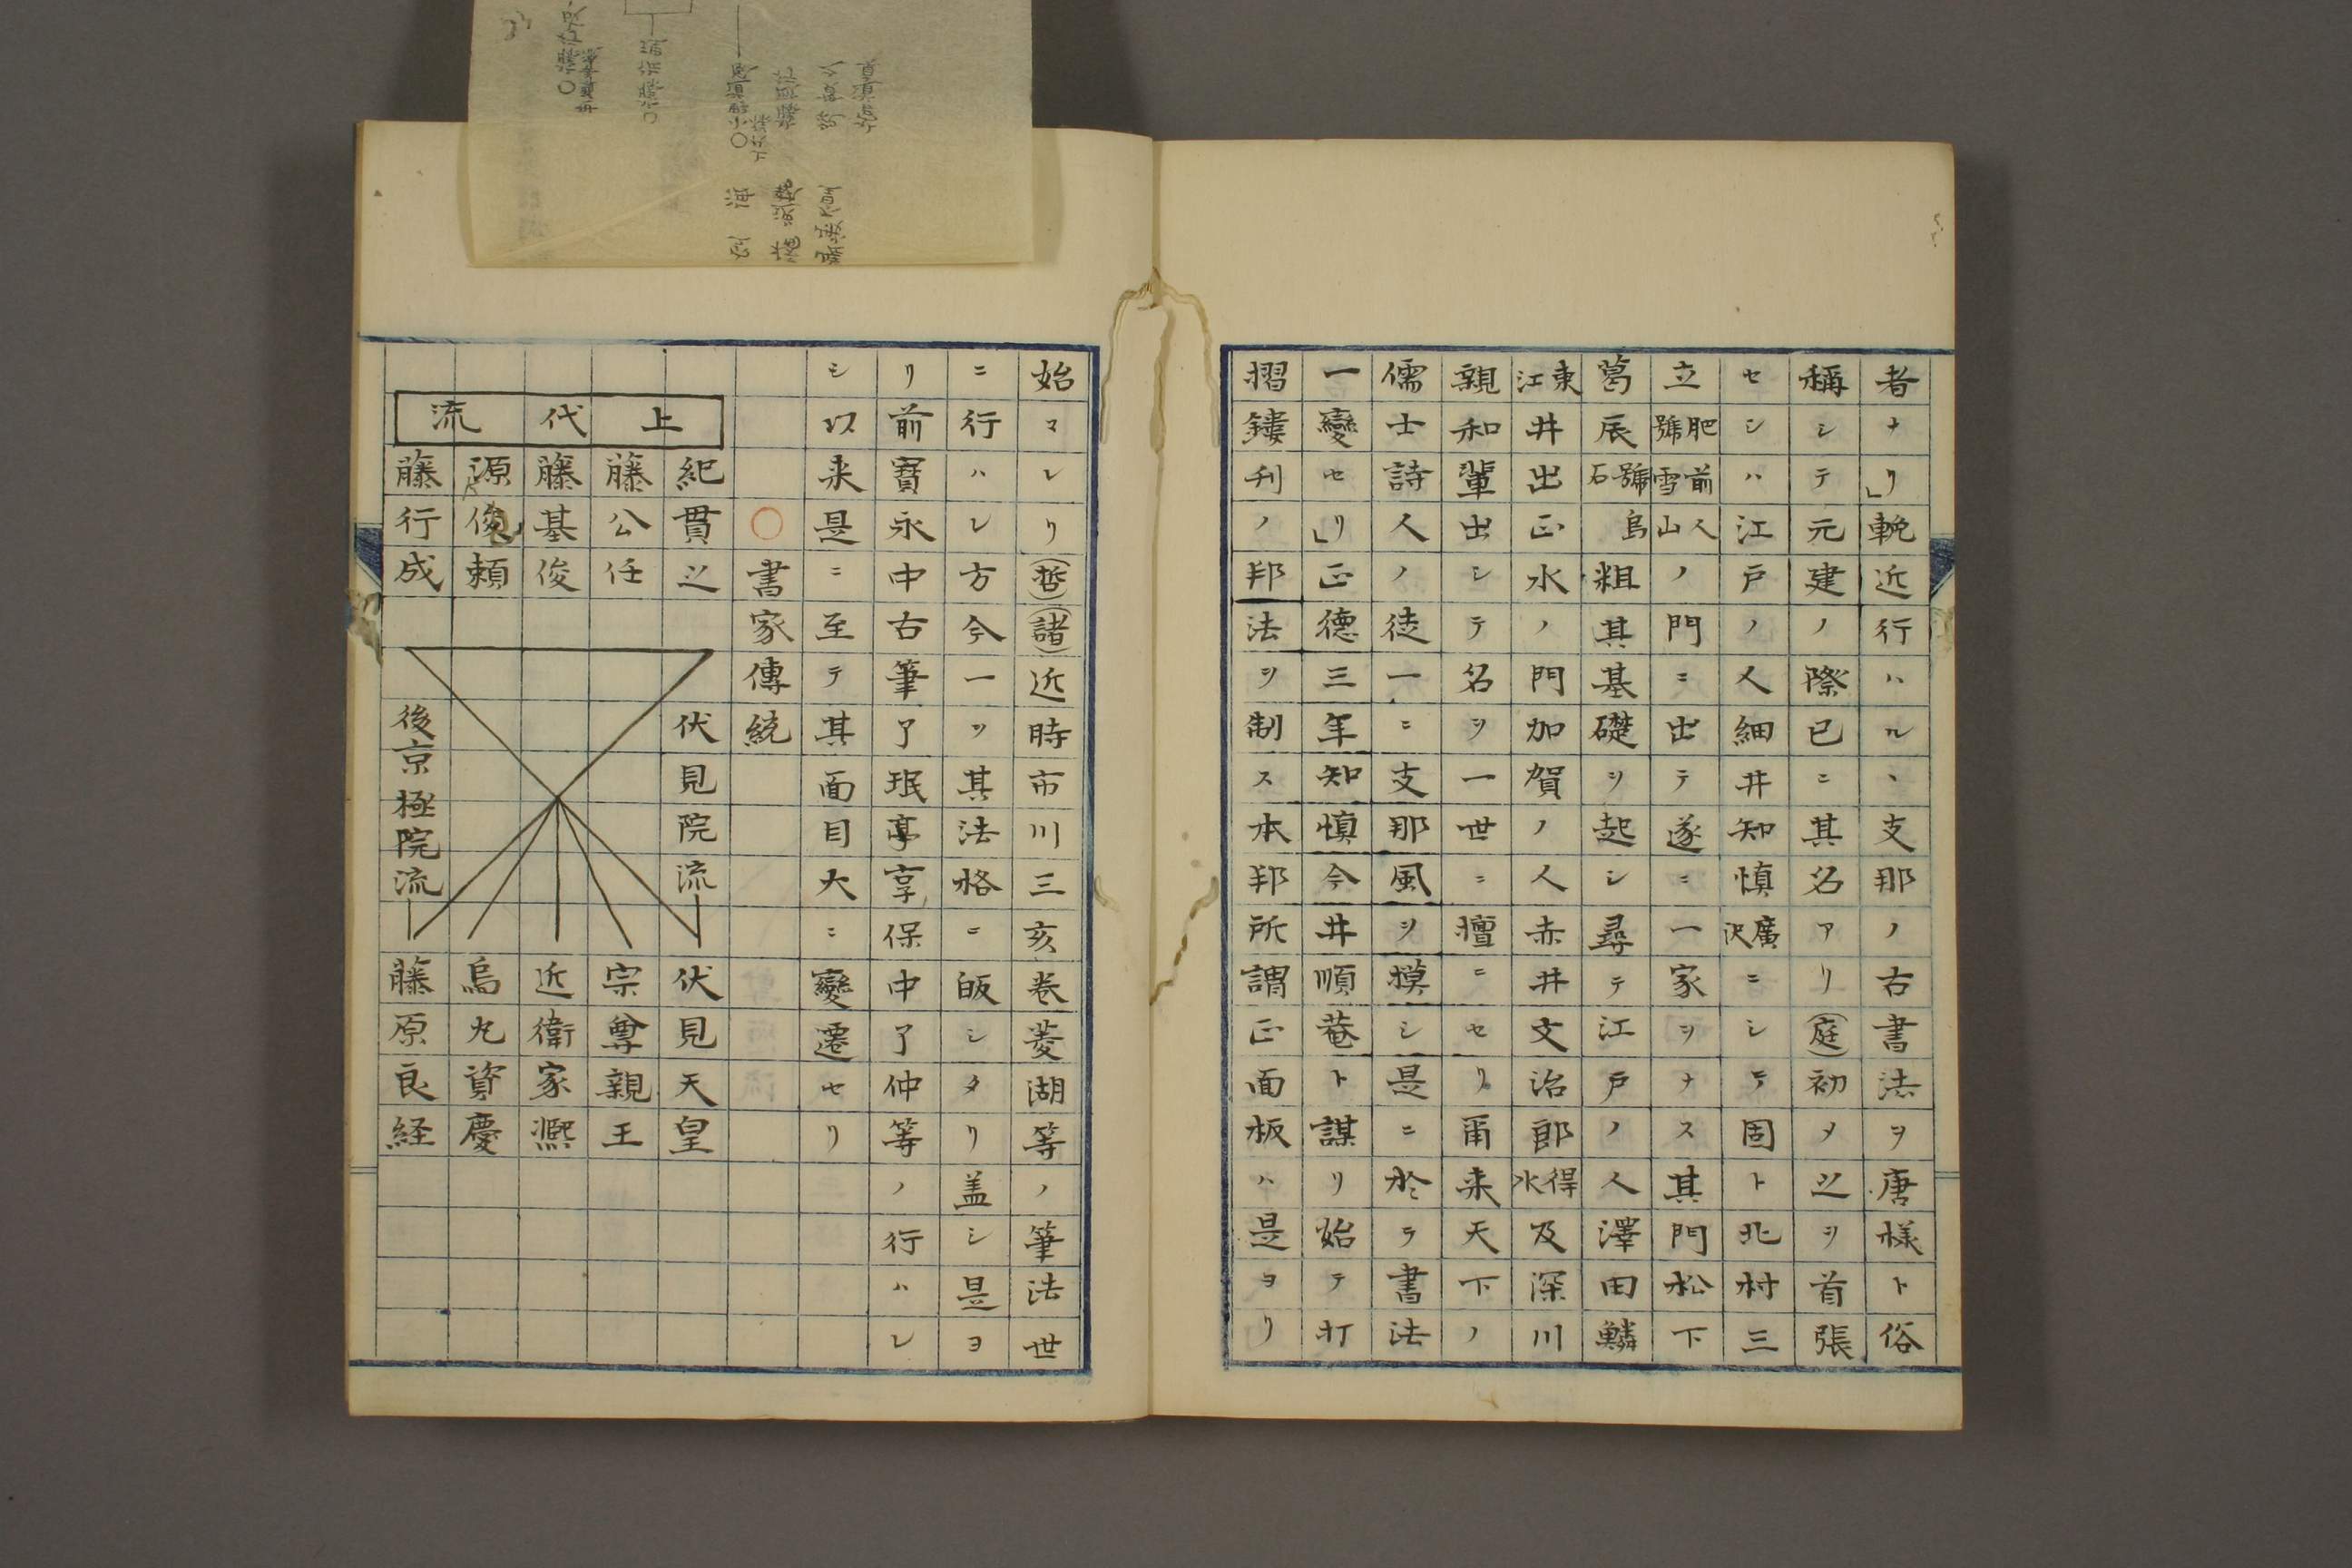 者ナリ」輓近行ハル、支那ノ古書法ヲ唐様ト俗
稱シテ元建ノ際已ニ其名アリ(庭)初メ之ヲ首張
セシハ江戸ノ人細井知慎廣沢ニシテ固ト北村三
立肥前人號雪山ノ門ニ出テ遂ニ一家ヲナス其門松下
葛辰號烏石粗其基礎ヲ起シ尋テ江戸ノ人澤田鱗
東江井出正水ノ門加賀ノ人赤井文治郎得水及深川
親和輩出シテ名ヲ一世ニ擅ニセリ甭来天下ノ
儒士詩人ノ徒一ニ支那風ヲ摸シ是ニ於テ書法
一變セリ」正德三年知慎今井順菴ト謀リ始テ打
摺鏤刋ノ邦法ヲ制ス本邦所謂正面板ハ是ヨリ
始マレリ(哲)(諸)近時市川三亥卷菱湖等ノ筆法世
ニ行ハレ方今一ツ其法格ニ皈シタリ盖シ是ヨ
リ前寶永中古筆了珉享享保中了仲等ノ行ハレ
シ以来是ニ至テ其面目大ニ變遷セリ
○書家傳統
上代流
紀貫之
藤公任
藤基俊
源俊頼
藤行成
伏見院流
後京極院流
伏見天皇
宗尊親王
近衛家凞
烏丸資慶
藤原良経